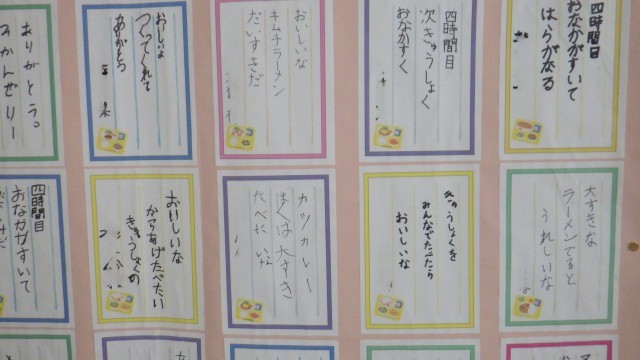 四時間目
おなかがすいて
はらがなる
四時間目
次きゅうしょく
おなかすく
おいしいな
キムチラーメン
だいすきだ
おいしいよ
つくってくれて
ありがとう
ありがとう。
みかんぜりー
大すきな
ラーメンでると
うれしいな
きゅうしょくを
みんなでたべたら
おいしいな
カツカレー
ぼくは大すき
たべたいな
おいしいな
からあげたべたい
きゅうしょくの
四時間目
おなかがすいて